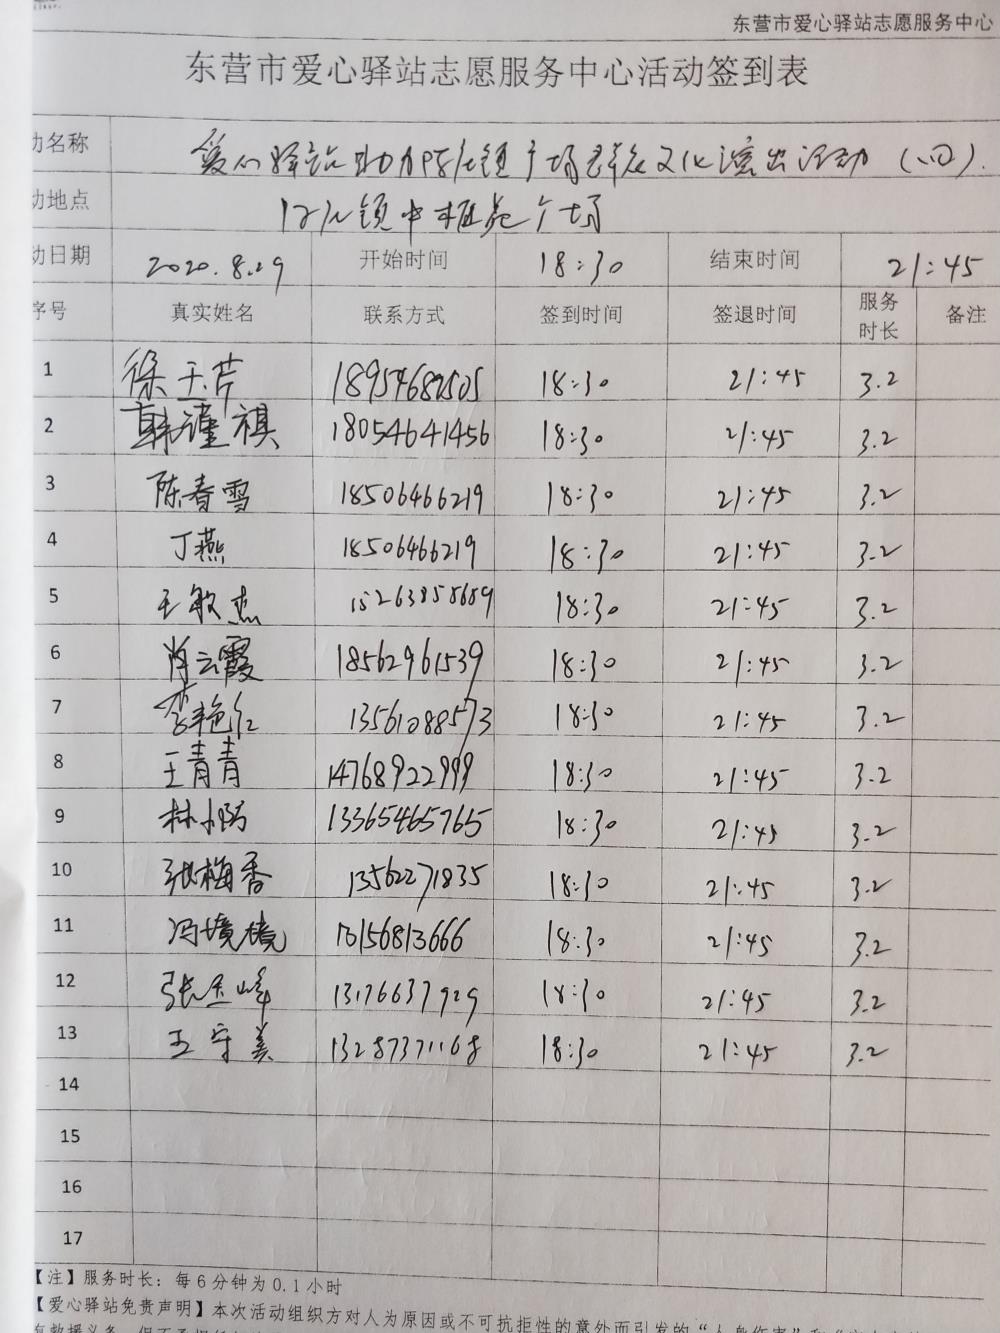 东营市爱心驿站志愿服务中心
东营市爱心驿站志愿服务中心活动签到表
动名称 爱心驿站助力陈庄镇广场群众文化演出活动（四）.
动地点 陈庄镇中心 广场
动日期 2020.8.29 开始时间 18:30 结束时间 21:45
序号 真实姓名 联系方式 签到时间 签退时间 服务时长 备注
1 徐玉芹 18954682505 18:30 21:45 3.2
2 韩瑾祺 18054641456 18:30 21:45 3.2
3 陈春雪 18506466219 18:30 21:45 3.2
4 丁燕 18506466219 18:30 21:45 3.2
5 王敏杰 15263858689 18:30 21:45 3.2
6 肖云霞 18562961539 18:30 21:45 3.2
7 李艳红 13561088573 18:30 21:45 3.2
8 王青青 14768922999 18:30 21:45 3.2
9 林小防 13365465765 18:30 21:45 3.2
10 张梅香 13562271835 18:30 21:45 3.2
11 冯境境 18:30 21:45 3.2
12 张金峰 13176637929 18:30 21:45 3.2
13 王守美 13287371168 18:30 21:45 3.2
14
15
16
17
【注】服务时长：每6分钟为0.1小时
【爱心驿站免责声明】本次活动组织方对人为原因或不可抗拒性的意外而引发的“人身伤害”和